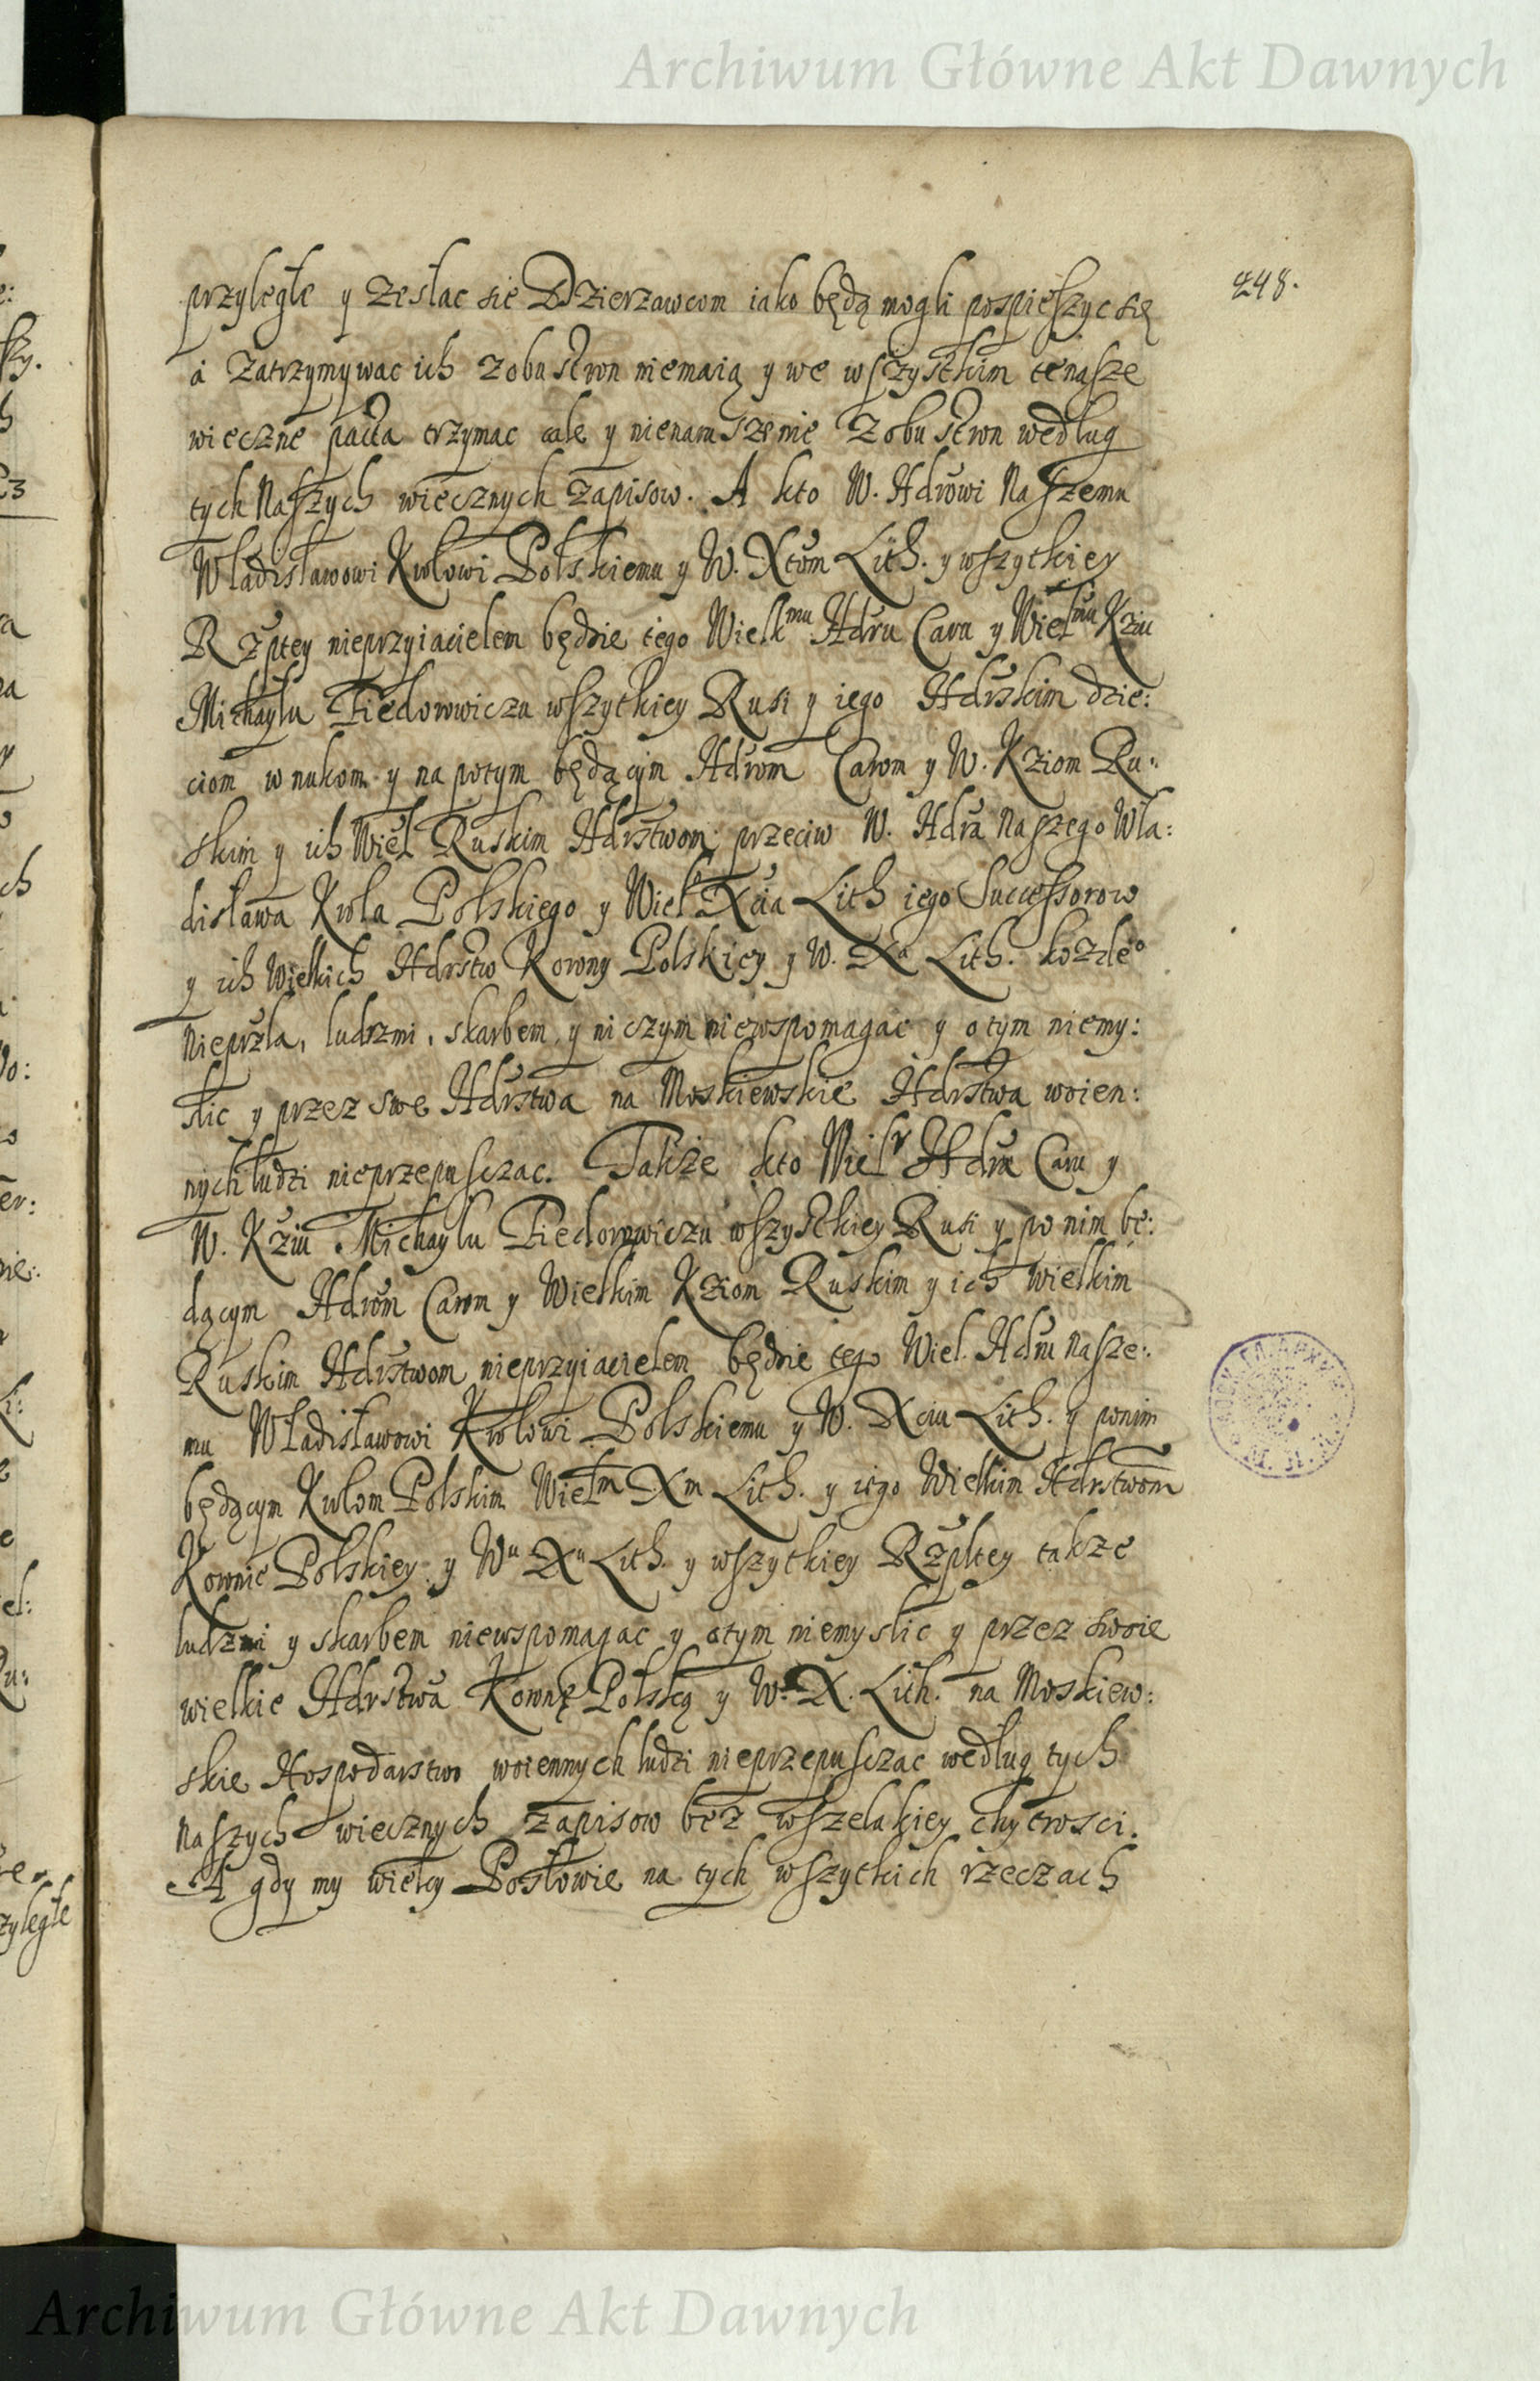 Archiwum Główne Akt Dawnych
248.
przyległe y zesłac sie Dzierzawcom iako będą mogli pospieszyc się
a zatrzymywac ich z obu stron niemaią y we wszystkim te nasze
wieczne pacta trzymac cale y nienaruszenie z obu stron według
tych Naszych wiecznych zapisow. A kto W. Hdrowi Naszemu
Władisławowi Krolowi Polskiemu y W. Xtom Lith. y wszytkiey
Rzptey nieprzyiacielem będzie tego Wielkmu Hdru Caru y Wielmu Kziu
Michayłu Fiedorowiczu wszytkiey Rusi y iego Hdrskim dzie:
ciom wnukom y na potym będącym Hdrom Carom y W. Kziom Ru:
skim y ich Wiel Ruskim Hdrstwom przeciw W. Hdra Naszego Wła:
disława Krola Polskiego y Wielº Xcia Lith iego Successorow
y ich Wielkich Hdrstw Korony Polskiey y W. Xa Lith. kozdeº
Nieprzla, ludzmi, skarbem, y niczym niewspomagac y o tym niemy:
slic y przez swe Hdrstwa na Moskiewskie Hdrstwa woien:
nych ludzi nieprzepusczac. Także kto Hdra Caru y
W. Kziu Michayłu Fiedorowiczu wszystkiey Rusi y po nim bę:
dącym Hdrom Carom y Wielkim Kziom Ruskim y ich wielkim
Ruskim Hdrstwom nieprzyiacielem będzie tego Wiel. Hdru Nasze:
mu Władisławowi Krolowi Polskiemu y W. Xciu Lith. y ponim
będącym Krolom Polskim Wielm Xm Lith. y iego Wielkim Hdrstwom
Koronie Polskiey y Wu Xu Lith. y wszytkiey Rzpltey takze
ludzmi y skarbem niewspomagac y otym niemyslic y przez swoie
wielkie Hdrstwa Koronę Polską y W. X. Lith. na Moskiew:
skie Hospodarstwo woiennych ludzi nieprzepusczac według tych
Naszych wiecznych zapisow bez wszelakiey chytrosci.
A gdy my wielcy Posłowie na tych wszytkich rzeczach
Archiwum Główne Akt Dawnych